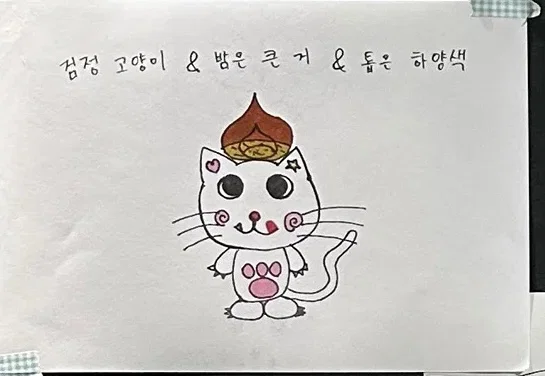 검정 고양이 & 밤은 큰 거 & 톱은 하양색